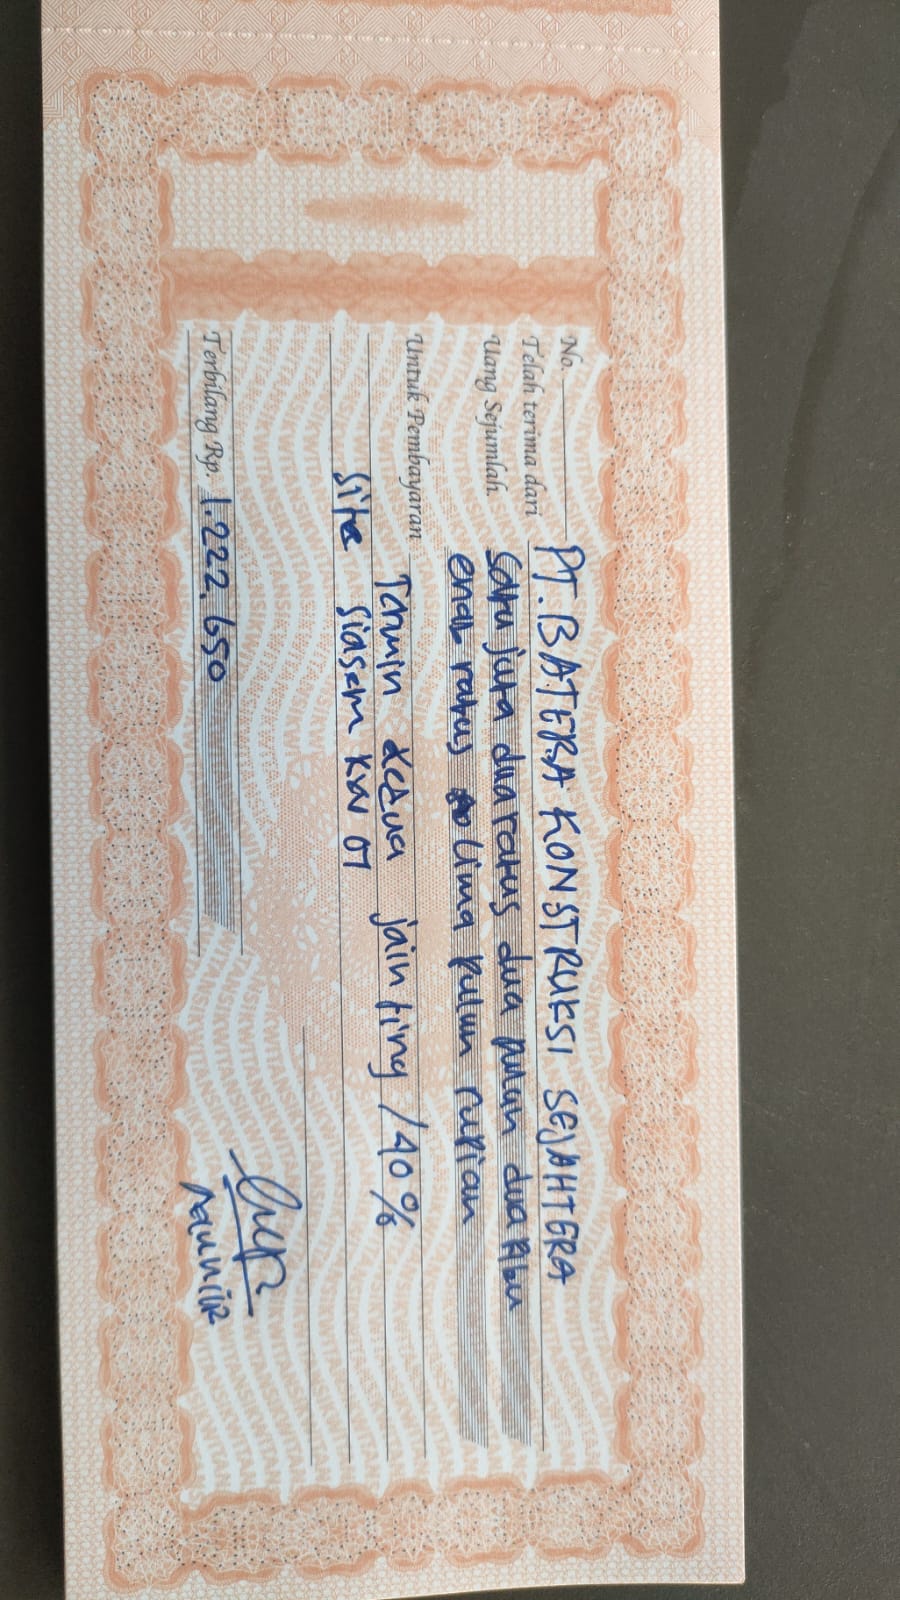 No.
Telah terima dari PT. BATERA KONSTRUKSI SEJAHTERA
Uang Sejumlah. Satu juta dua ratus dua puluh dua Ribu
enam ratus lima puluh rupiah
Untuk Pembayaran
Termin kedua jainting / 40 %
Site Siasem KW 01
Terbilang Rp. 1.222.650